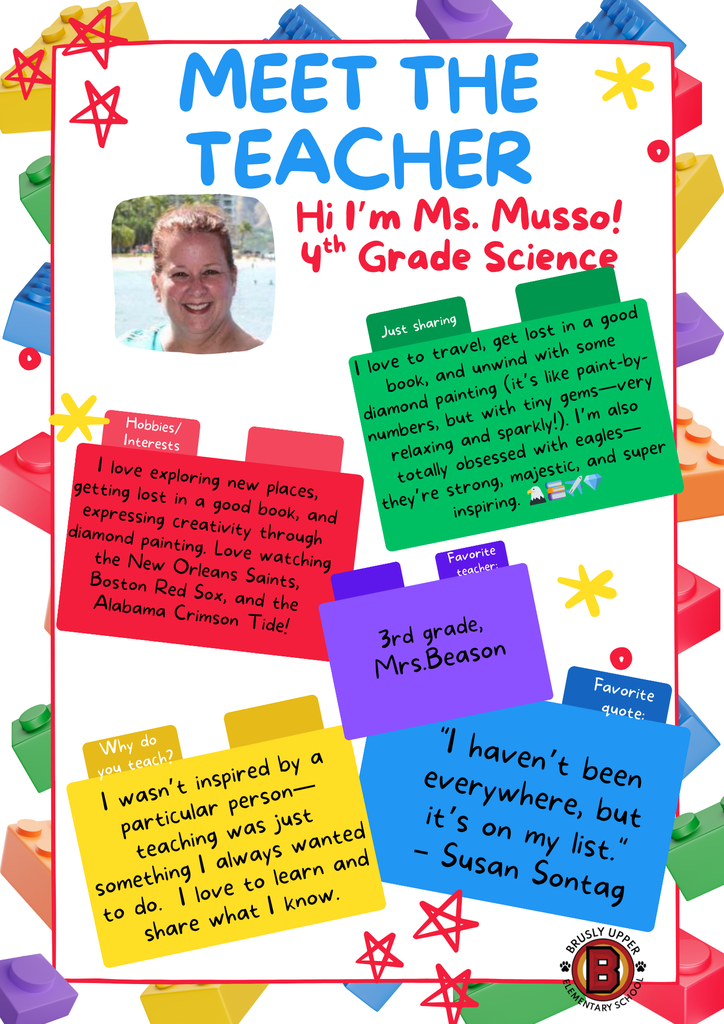 MEET THE
TEACHER
Hi I'm Ms. Musso!
4th Grade Science
Just sharing
I love to travel, get lost in a good
book, and unwind with some
diamond painting (it's like paint-by-
numbers, but with tiny gems—very
relaxing and sparkly!). I'm also
totally obsessed with eagles—
they're strong, majestic, and super
inspiring. 🦅📚✈️💎
Hobbies/
Interests
I love exploring new places,
getting lost in a good book, and
expressing creativity through
diamond painting. Love watching
the New Orleans Saints,
Boston Red Sox, and the
Alabama Crimson Tide!
Favorite
teacher:
3rd grade,
Mrs.Beason
Why do
you teach?
I wasn't inspired by a
particular person—
teaching was just
something I always wanted
to do. I love to learn and
share what I know.
Favorite
quote:
"I haven't been
everywhere, but
it's on my list."
- Susan Sontag
BRUSLY UPPER
B
ELEMENTARY SCHOOL